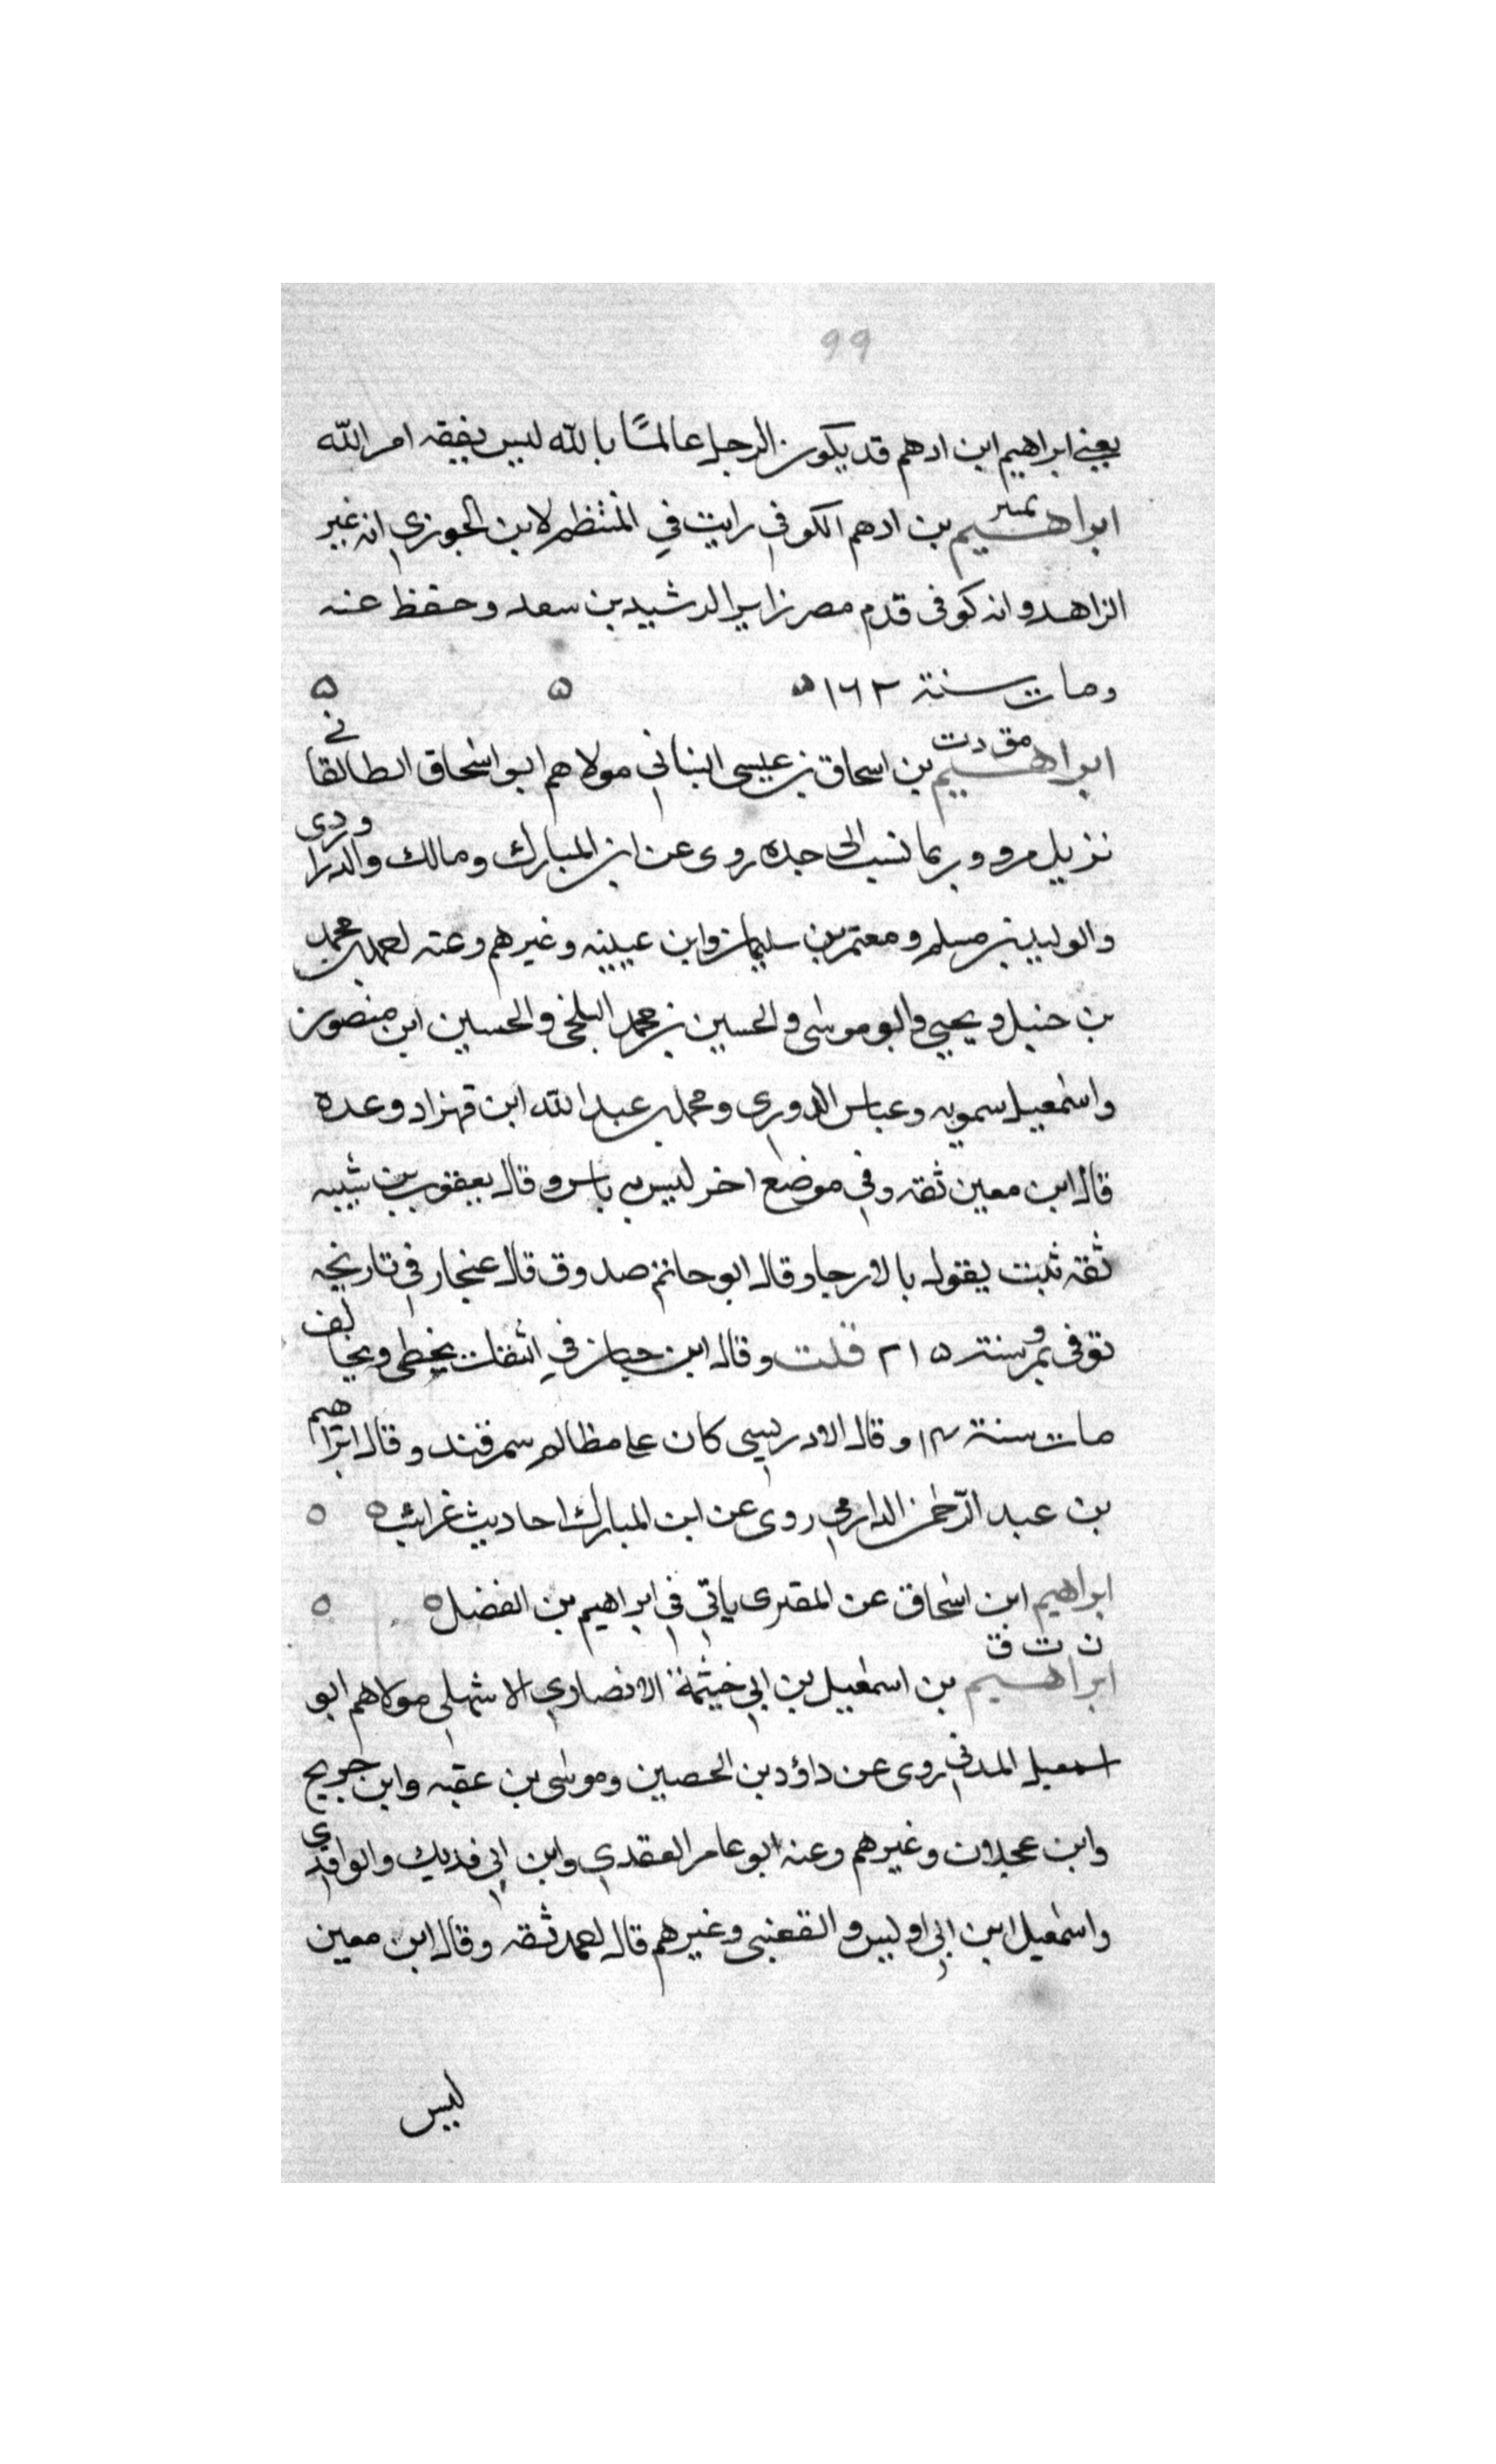 99
يعني ابراهيم ابن ادهم قد يكون الرجل عالمًا بالله ليس يفقه امر الله
تمييز
ابراهيم بن ادهم الكوفي رايت في المنتظم لابن الجوزي انه غير
الزاهد وانه كوفى قدم مصر زايرا لرشيد بن سعد وحفظ عنه
ومات سنة ١٦٢ ه ه ه
مق د ت
ابراهيم بن اسحاق بن عيسى البناني مولاهم ابو اسحاق الطالقاني
نزيل مرو وربما نسب الى جده روى عن ابن المبارك ومالك والدراوردى
والوليد بن مسلم ومعتمر بن سليمان وابن عيينه وغيرهم وعنه احمد بن محمد
بن حنبل ويحيي وابو موسى والحسين بن محمد البلخى والحسين ابن منصور
واسمعيل سمويه وعباس الدوري ومحمد بن عبد الله ابن قهزاد وعدة
قال ابن معين ثقه وفي موضع اخر ليس به باس وقال يعقوب بن شيبه
ثقه ثبت يقول بالارجا وقال ابو حاتم صدوق قال غنجار في تاريخه
توفى بمرو سنة ٢١٥ قلت وقال ابن حبان في الثقات يخطى ويخالف
مات سنة ١٤ وقال الادريسي كان على مظالم سمرقند وقال ابراهيم
بن عبد الرحمن الدارمي روى عن ابن المبارك احاديث غرائب ه ه
ابراهيم ابن اسحاق عن المقبرى ياتي في ابراهيم بن الفضل ه ه
ت ق
ابراهيم بن اسمعيل بن ابي خيثمة الانصاري الاشهلي مولاهم ابو
اسمعيل المدني روى عن داؤد بن الحصين وموسى بن عقبه وابن جريج
وابن عجلان وغيرهم وعنه ابو عامر العقدي وابن ابي فديك والواقدي
واسمعيل ابن ابي اويس والقعنبى وغيرهم قال احمد ثقه وقال ابن معين
ليس